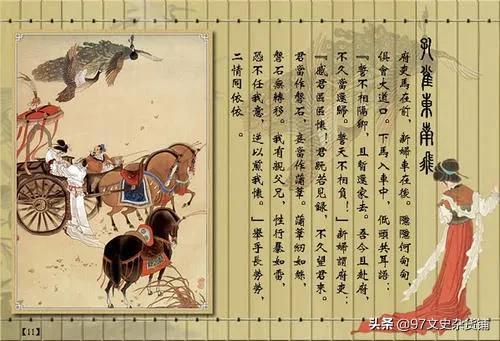 孔雀東南飛
府吏馬在前,新婦車在後。隱隱何甸甸
俱會大道口。下馬入車中,低頭共耳語:
『誓不相隔卿,且暫還家去。吾今且赴府,
不久當還歸。誓天不相負!』新婦謂府吏:
『感君區區懷!君既若見錄,不久望君來。
君當作磐石,妾當作蒲葦。蒲葦紉如絲,
磐石無轉移。我有親父兄,性行暴如雷,
恐不任我意,逆以煎我懷。』舉手長勞勞,
二情同依依。
【11】
头条 @97文史杂货铺